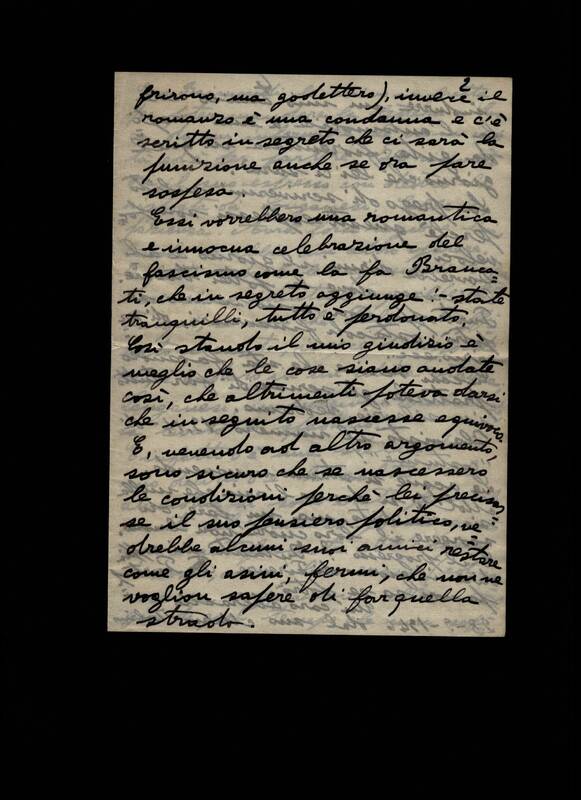 2
frirono, ma godettero), invece il
romanzo è una condanna e c'è
scritto in segreto che ci sarà la
punizione anche se ora pare
sospesa.
Essi vorrebbero una romantica
e innocua celebrazione del
fascismo come la fa Branca-
ti, che in segreto aggiunge: - state
tranquilli, tutto è perdonato.
Così stando il mio giudizio è
meglio che le cose siano andate
così, che altrimenti poteva darsi
che in seguito nascesse equivoco.
E, venendo ad altro argomento,
sono sicuro che se nascessero
le condizioni perchè lei precisas-
se il suo pensiero politico, ve-
drebbe alcuni suoi amici restare
come gli asini, fermi, che non ne
voglion sapere di far quella
strada.